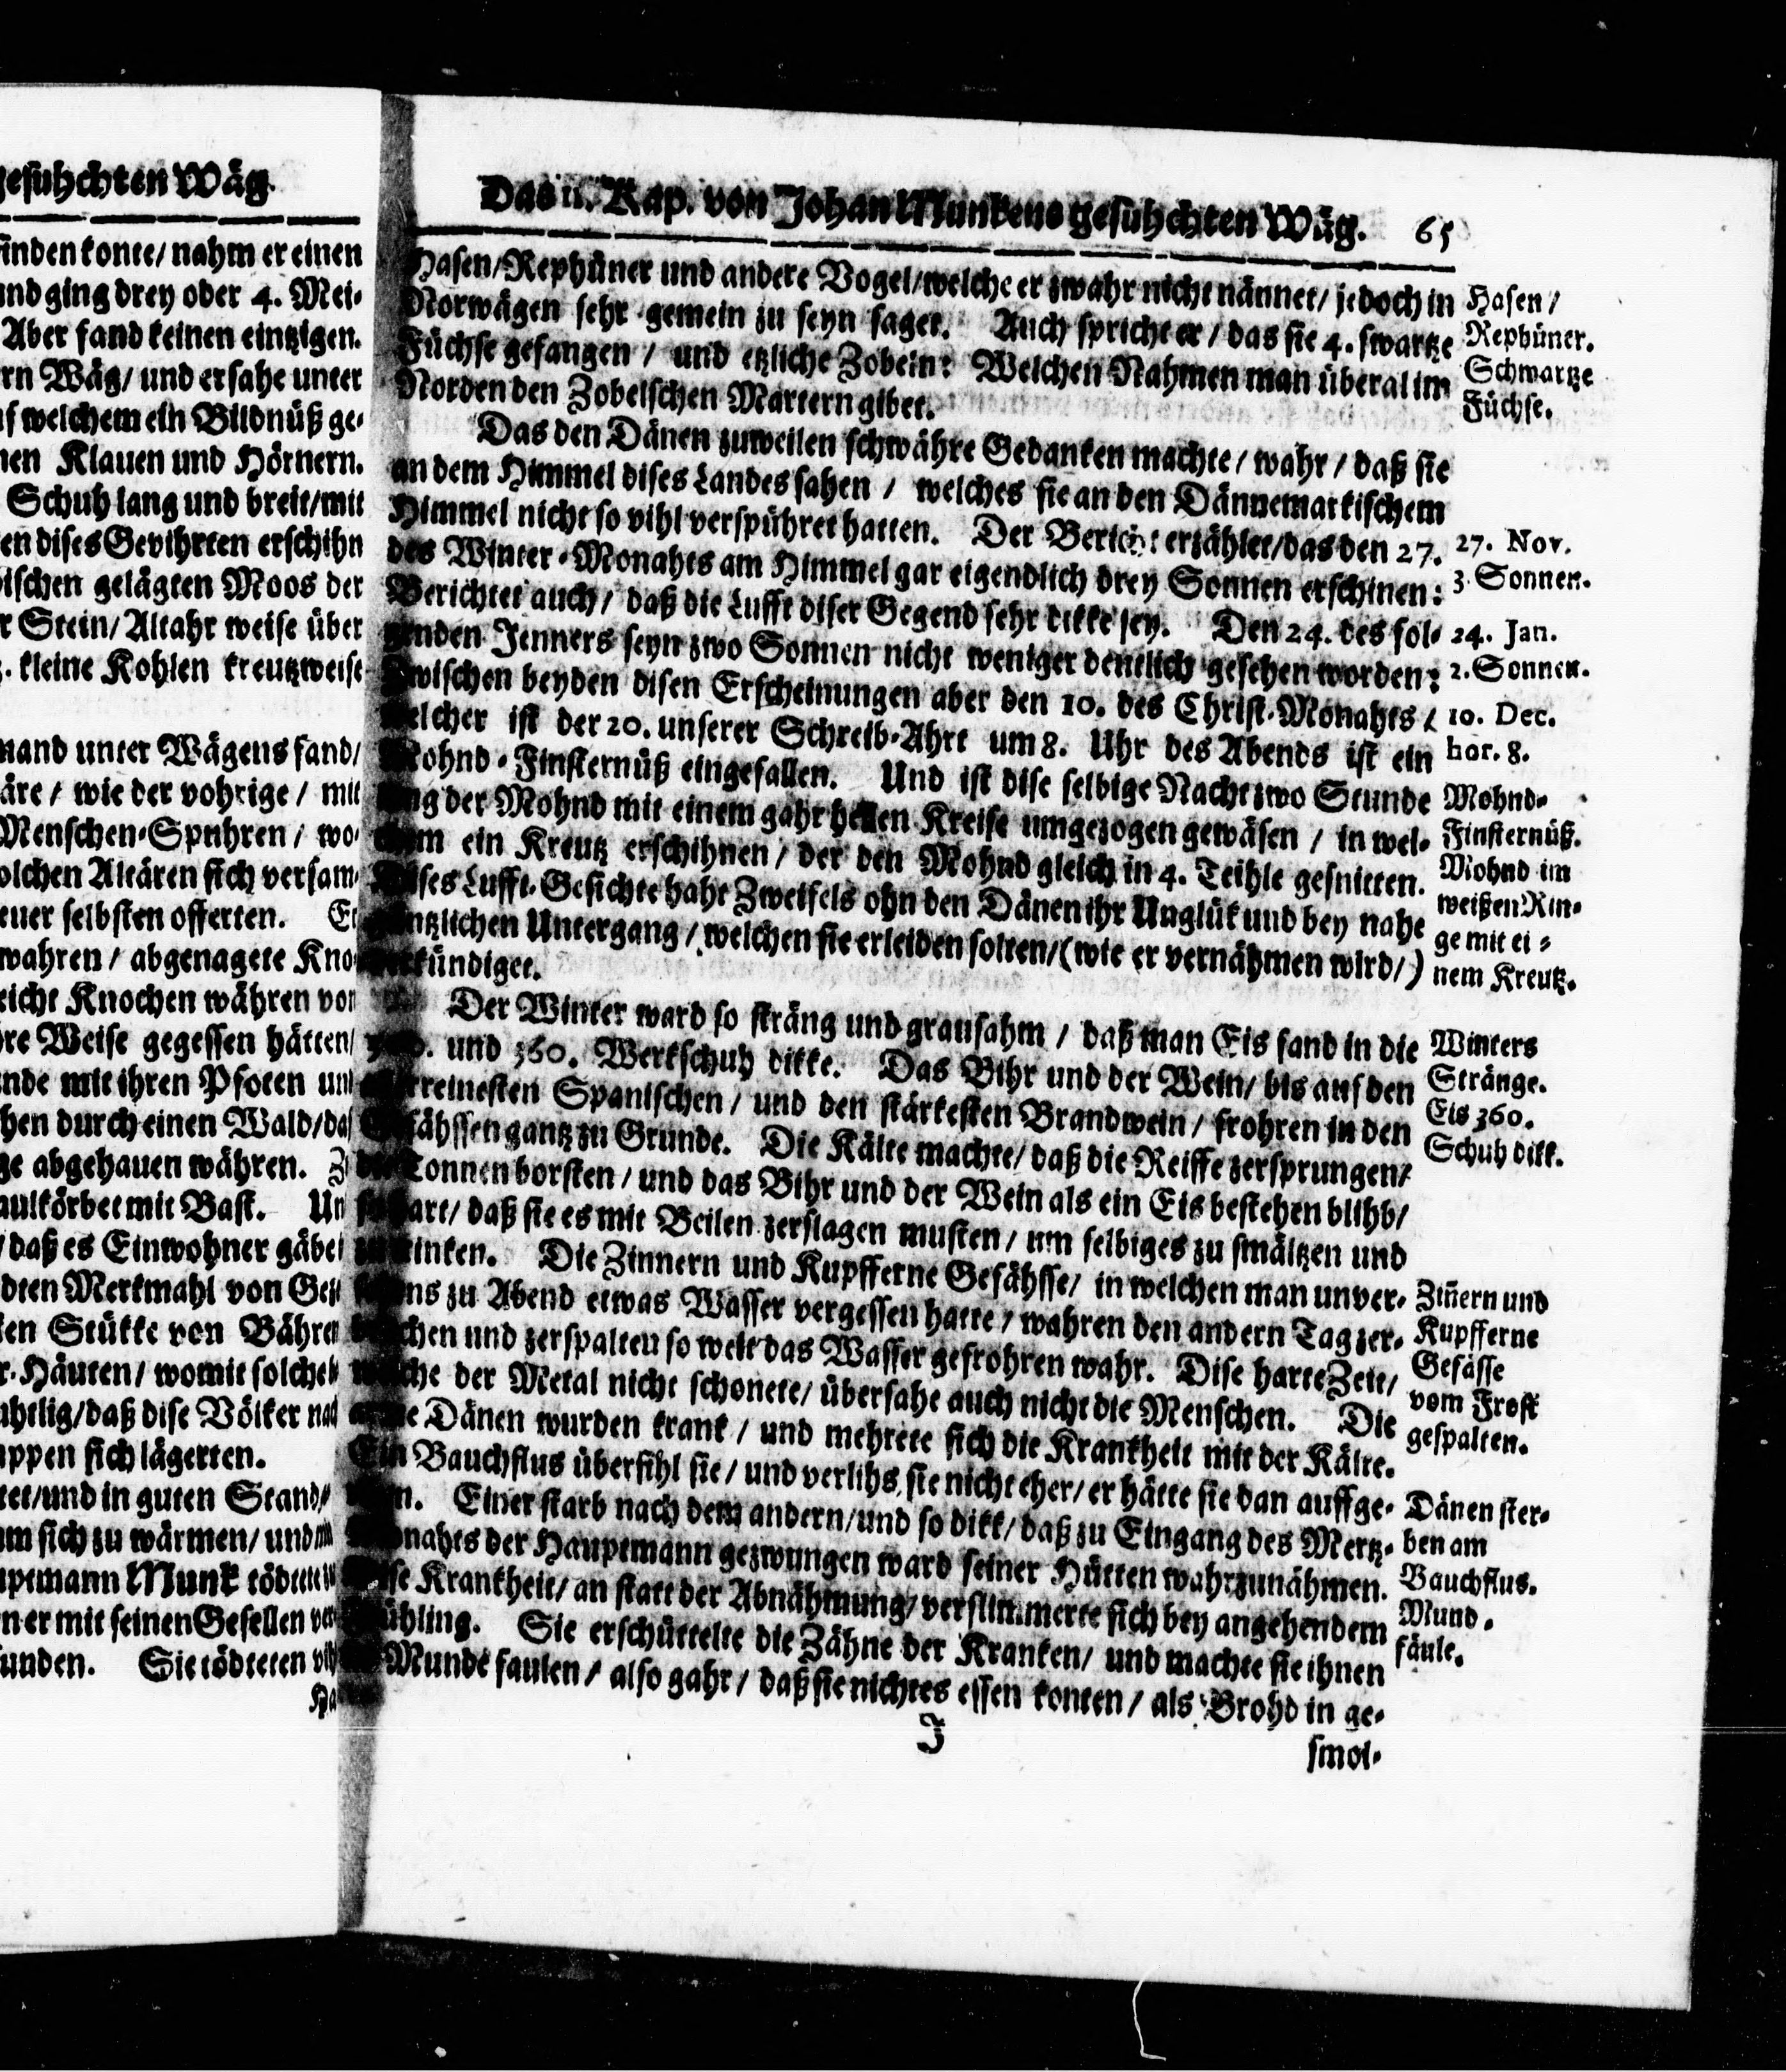 gesuhchten Wäg.
finden konte/ nahm er einen
und ging drey oder 4. Mei-
Aber fand keinen eintzigen.
Wäg/ und ersahe unter
welchem ein Bildnüß ge-
Klauen und Hörnern.
Schuh lang und breit/ mit
dises Gevihrten erschihn
gelägten Moos der
Stein/ Altahr weise über
kleine Kohlen kreutzweise
unter Wägens fand/
wie der vohrige/ mit
Menschen-Spuhren/ wo-
solchen Altären sich versam-
selbsten offerten.
wahren/ abgenagete Kno-
Knochen währen von
Weise gegessen hätten/
mit ihren Pfoten
durch einen Wald/
abgehauen währen.
mit Bast.
daß es Einwohner gäbe
Merkmahl von
Stükke von Bähren
Häuten/ womit solche
daß dise Völker
sich lägerten.
und in guten Stand/
um sich zu wärmen/ und
Munk tödtete
mit seinen Gesellen
Sie tödteten
Ha-
Das 11. Kap. von Johan Munkens gesuhchten Wäg. 65
Hasen/ Rephüner und andere Vogel/ welche er zwahr nicht nännet/ jedoch in
Norwägen sehr gemein zu seyn saget. Auch spricht er/ das sie 4. swartze
Füchse gefangen/ und etzliche Zobeln: Welchen Nahmen man überal im
Norden den Zobelschen Martern gibet.
Das den Dänen zuweilen schwähre Gedanken machte/ wahr/ daß sie
an dem Himmel dises Landes sahen/ welches sie an den Dännemarkischem
Himmel nicht so vihl verspühret hatten. Der Bericht erzählet/ das den 27.
des Winter-Monahts am Himmel gar eigendlich drey Sonnen erschinen:
Berichtet auch/ daß die Lufft diser Gegend sehr dikke sey. Den 24. des fol-
genden Jenners seyn zwo Sonnen nicht weniger deutlich gesehen worden:
Zwischen beyden disen Erscheinungen aber den 10. des Christ-Monahts/
welcher ist der 20. unserer Schreib-Ahrt um 8. Uhr des Abends ist ein
Mohnd-Finsternüß eingefallen. Und ist dise selbige Nacht zwo Stunde
lang der Mohnd mit einem gahr hellen Kreise umgezogen gewäsen/ in wel-
chem ein Kreutz erschihnen/ der den Mohnd gleich in 4. Teihle gesnitten.
Dises Lufft-Gesichte haht Zweifels ohn den Dänen ihr Unglük und bey nahe
gäntzlichen Untergang/ welchen sie erleiden solten/ (wie er vernähmen wird/)
verkündiget.
Der Winter ward so sträng und grausahm/ daß man Eis fand in die
und 360. Werkschuh dikke. Das Bihr und der Wein/ bis auf den
allerreinesten Spanischen/ und den stärkesten Brandwein/ frohren in den
Gefähssen gantz zu Grunde. Die Kälte machte/ daß die Reiffe zersprungen/
die Tonnen borsten/ und das Bihr und der Wein als ein Eis bestehen blihb/
so hart/ daß sie es mit Beilen zerslagen musten/ um selbiges zu smältzen und
zu trinken. Die Zinnern und Kupfferne Gefähsse/ in welchen man unver-
sehens zu Abend etwas Wasser vergessen hatte/ wahren den andern Tag zer-
brochen und zerspalten so weit das Wasser gefrohren wahr. Dise harte Zeit/
welche der Metal nicht schonete/ übersahe auch nicht die Menschen. Die
arme Dänen wurden krank/ und mehrete sich die Krankheit mit der Kälte.
Ein Bauchflus überfihl sie/ und verlihs sie nicht eher/ er hätte sie dan auffge-
ben. Einer starb nach dem andern/ und so dikk/ daß zu Eingang des Mertz-
Monahts der Hauptmann gezwungen ward seiner Hütten wahrzunähmen.
Dise Krankheit/ an statt der Abnähmung/ verslimmerte sich bey angehendem
Frühling. Sie erschüttelte die Zähne der Kranken/ und machte sie ihnen
Munde faulen/ also gahr/ daß sie nichtes essen konten/ als Brohd in ge-
J
smol-
Hasen/
Rephüner.
Schwartze
Füchse.
27. Nov.
3. Sonnen.
24. Jan.
2. Sonnen.
10. Dec.
hor. 8.
Mohnd-
Finsternüß.
Mohnd im
weißen Rin-
ge mit ei-
nem Kreutz.
Winters
Stränge.
Eis 360.
Schuh dikk.
Zinern und
Kupfferne
Gefässe
vom Frost
gespalten.
Dänen ster-
ben am
Bauchflus.
Mund-
fäule.